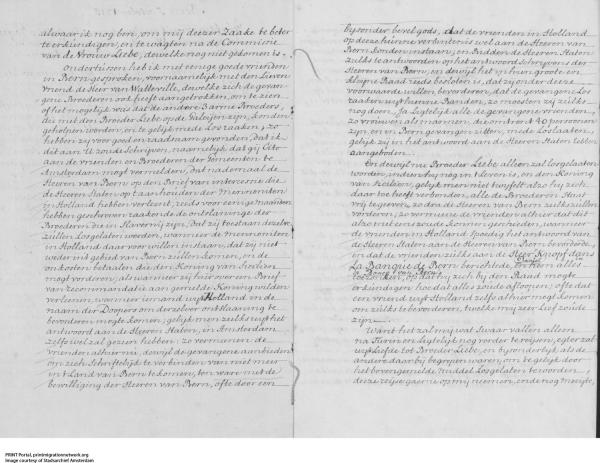 alwaar ik nog ben, om mij deezer Zaake te beter
te erkundigen, en te wagten na de Commissie
van de Vrouw Liebe, dewelke nog niet gekomen is.
Ondertusschen heb ik met eenige goede vrienden
in Bern gesproken, voornamelijk met den Lieven
Vriend de Heer van Watteville, dewelke zich de gevan-
gene Broederen ook heeft aangetrokken, om te zien
of het mogelijk was dat de andere Barme Broeders,
die met den Broeder Liebe op de Galeijen zijn, konden
geholpen worden, en te gelijk mede Los raaken, zo
hebben zij voor goed en raadzaam gevonden, dat ik
het aan U zoude schrijven, namelijk dat gij Cito
aan de vrienden en Broederen der Gemeenten te
Amsterdam mogt vermelden, dat nademaal de
Heeren van Bern op den Brief van intercessie die
de Heeren Staten voor de Mennoniten
in Holland hebben verleent, reeds voor eenige maanden
hebben geschreven raakende de ontslaninge der
Broederen die in Slavernij zijn, dat zij toestaan dezelve
zullen Losgelaten worden, wanneer de Mennoniten
in Holland daar voor willen instaan, dat zij niet
weder in 't gebied van Bern zullen komen, en de
onkosten betaalen die den Koning van Sardinien
mogt vorderen, als wanneer zij hier over een Brief
van recommandatie aan gemelde Koning wilden
verleenen, wanneer iemand uijt Holland in de
naam der Doopers om derzelver ontslaaning te
bevorderen mogte komen; gelijk men zulks uijt het
antwoord aan de Heeren Staten, in Amsterdam
zelfs wel zal gezien hebben: zo vermanen de
vrienden alhier nu, dewijl de gevangene aanbieden
om zich Schriftelijk te verbinden van niet meer
in 't Land van Bern te komen, ten ware met de
bewilliging der Heeren van Bern, ofte door een
bijsonder bevel gods, dat de vrienden in Holland
op deeze hunne verbintenis wel aan de Heeren van
Bern konden instaan, en zulks te
antwoord op het antwoord Schrijvens der
Heeren van Bern; en dewijl het in hun groote en
kleijne Raad reeds besloten is, dat zij onder deeze
voorwaarde willen bevorderen, dat de gevangene Los
raaken uijt hunne Banden, zo moesten zij zulks
nog doen. Ja Ligtelijk alle de gevangene vrienden,
zo vrouwen als mannen, die omtrent 40 persoonen
zijn, en in Bern gevangen zitten, mede Loslaaten,
gelijk zij in het antwoord aan de Heeren Staten hebben
aangeboden.
En dewijl nu Broeder Liebe alleen zal losgelaaten
worden, indien hij nog in 't Leven is, en den Koning
van Sardinien, gelijk men niet twijfelt also hij zich
daar toe heeft verbonden, alle de Broederen Haar
vrij te geven, zo dra de Heeren van Bern zulks zullen
vorderen, zo vermeenen de vrienden alhier dat dit
also met een zoude konnen geschieden, wanneer
de vrienden in Holland Spoedig het antwoord van
de Heeren Staten aan de Heeren van Bern bevorderde,
en dat de vrienden zulks aan de Heer Knopf dans
La Banque de Bern berichtede, en hem alles
bij den Raad mogte
erkundigen hoe dat alles zoude afloopen; ofte dat
een vriend uijt Holland zelfs alhier mogt komen
om zulks te bevorderen, twelke mij zeer Lief zoude
zijn.
Want het zal mij wat Swaar vallen alleen
na Turin en Ligtelijk nog verder te reijsen, egter zal
uijt Liefde tot Broeder Liebe, en bijsonderlijk als de
andere daar bij begreepen waren, om te gelijk door
het bovengemelde middel Losgelaten te worden,
deeze reijze gaerne op mij neemen, ende nog moeijte,
PRINT Portal, printmigrationnetwork.org
Image courtesy of Stadsarchief Amsterdam